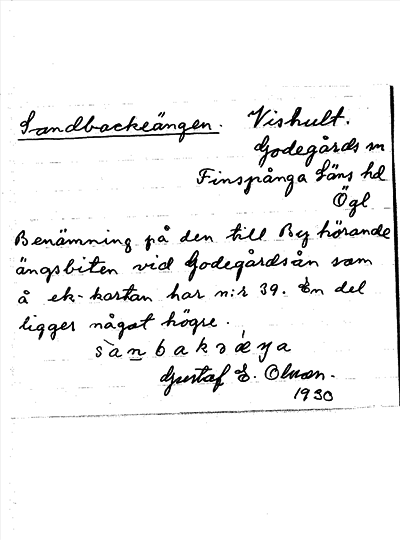 Sandbackeängen. Vishult.
Godegårds sn
Finspånga läns hd
Ögl
Benämning på den till By hörande
ängsbiten vid Godegårdsån som
å ek-kartan har n:r 39. En del
ligger något högre.
Gustaf E. Olsson.
1930